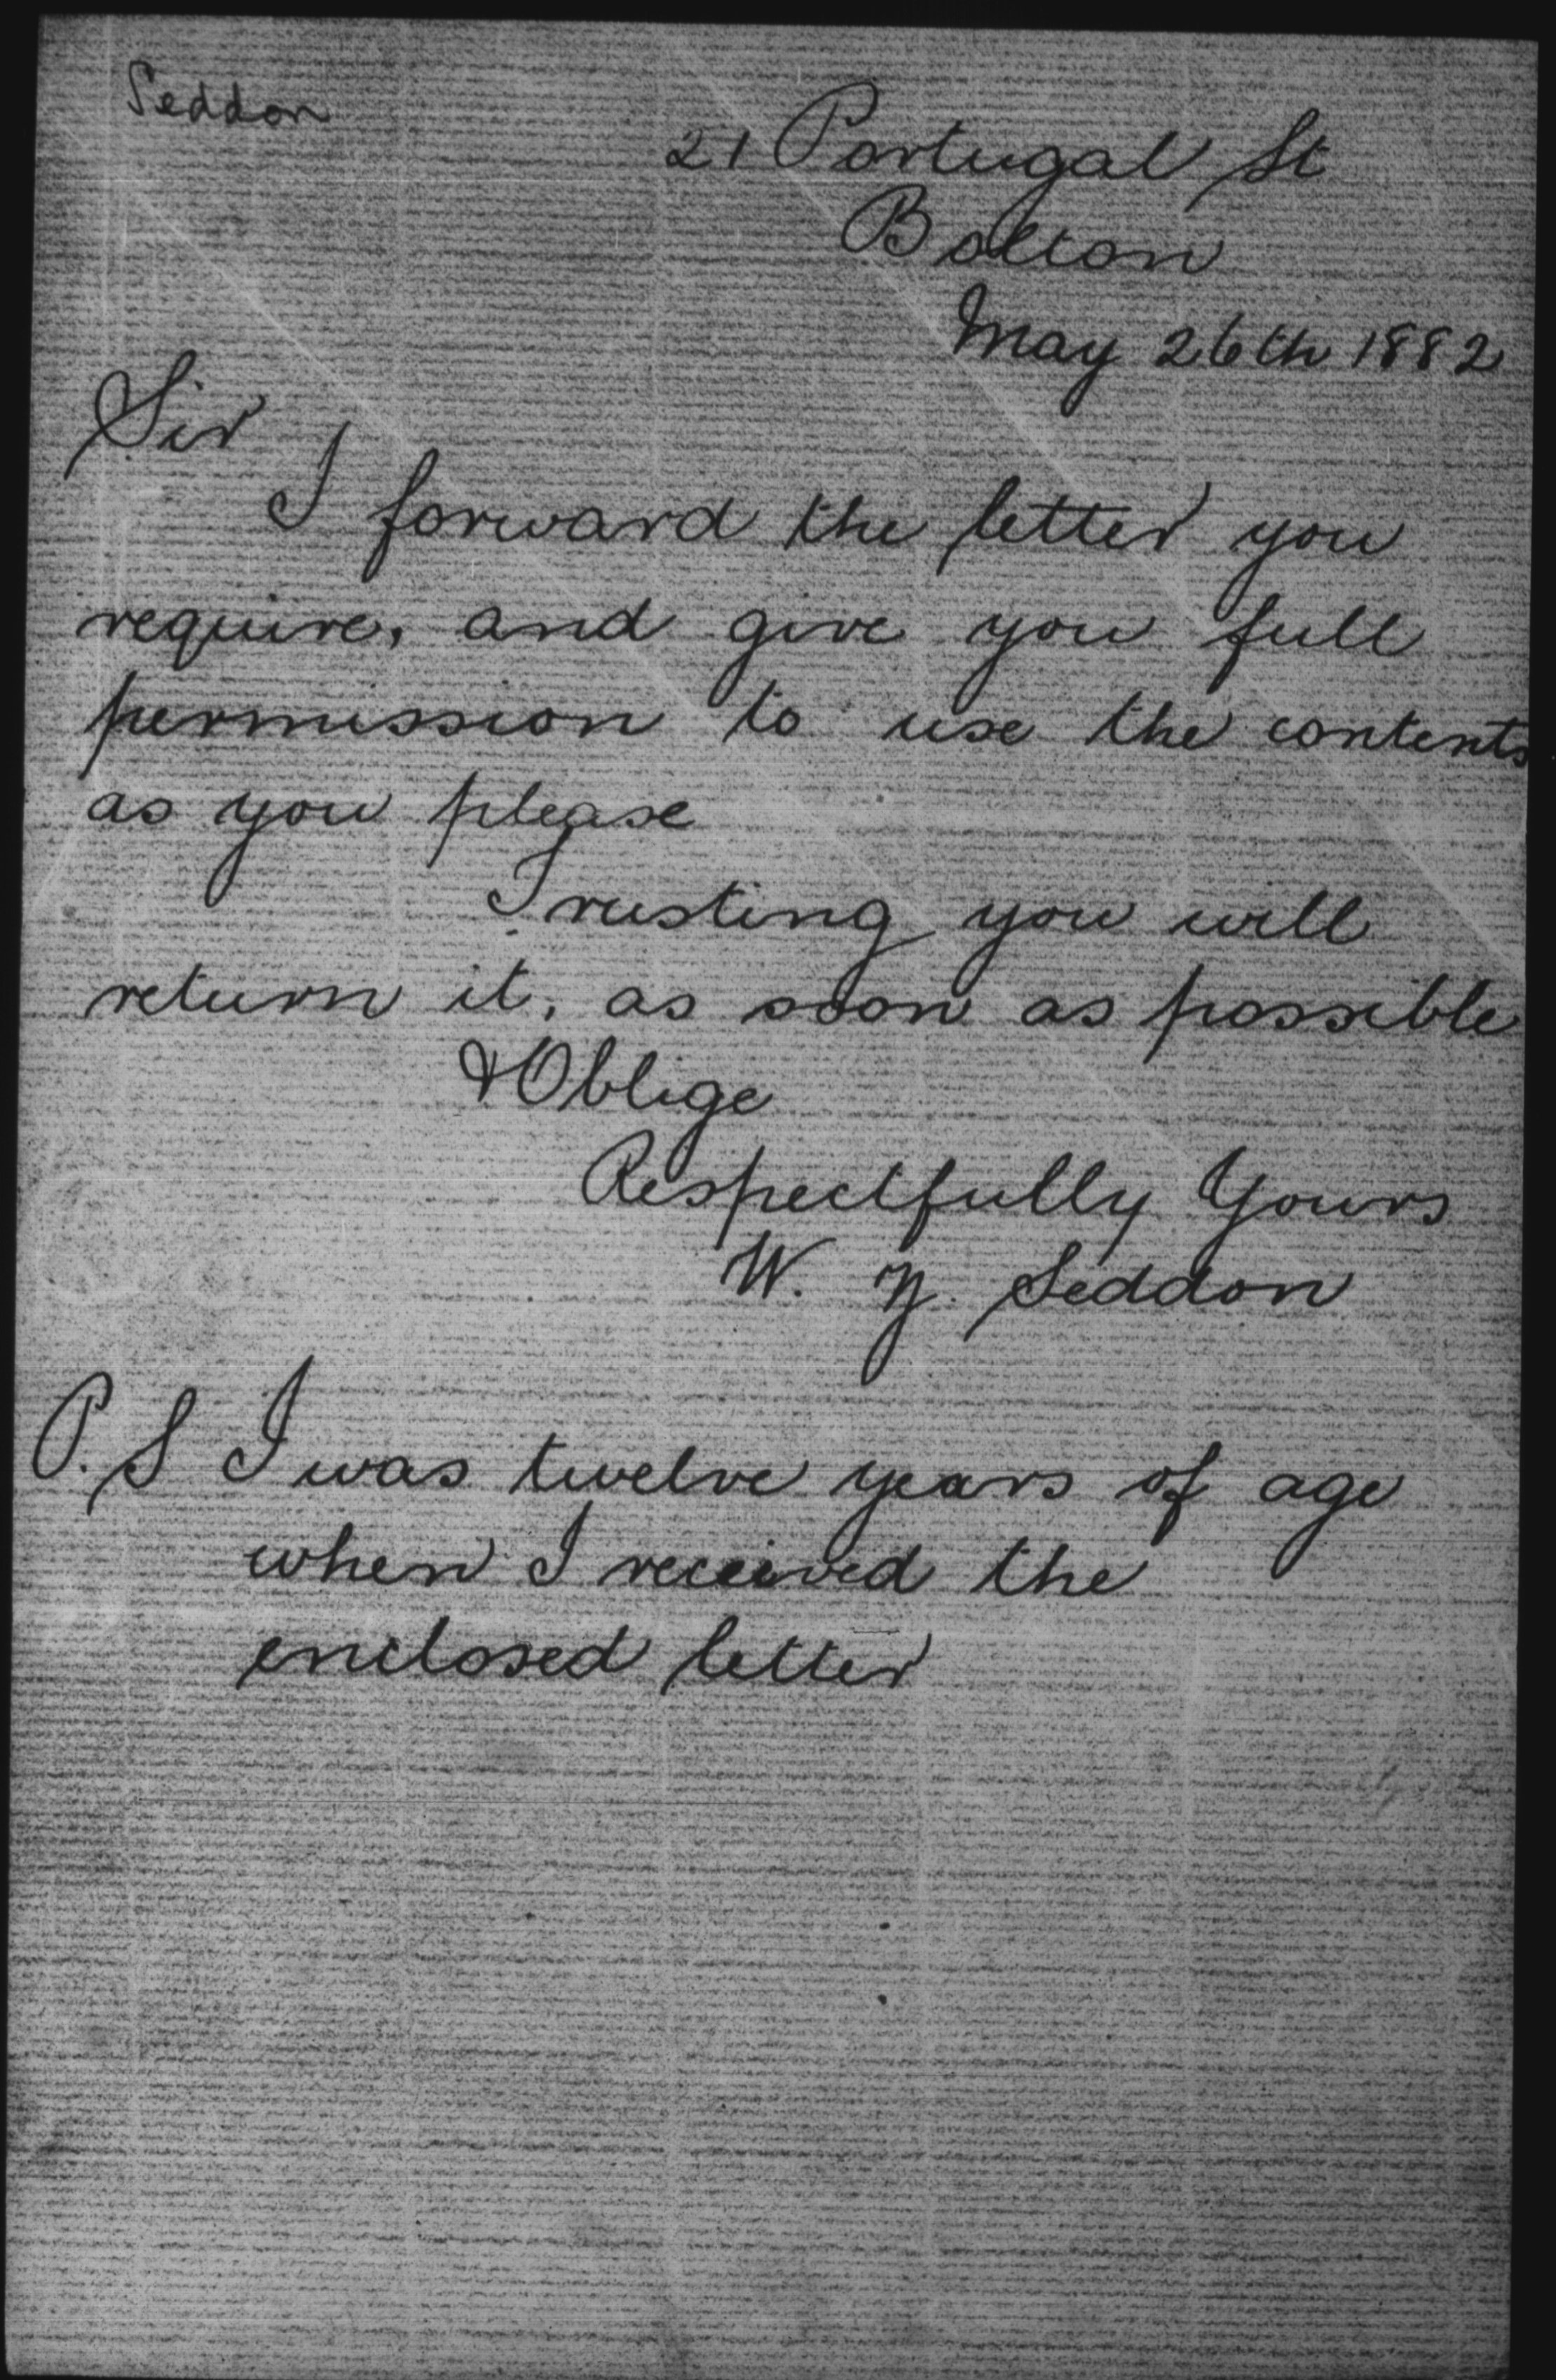 Seddon
21 Portugal St
Bolton
May 26th 1882
Sir
I forward the letter you
require, and give you full
permission to use the contents
as you please
Trusting you will
return it, as soon as possible
& Oblige
Respectfully Yours
W. Y. Seddon
P. S I was twelve years of age
when I received the
enclosed letter